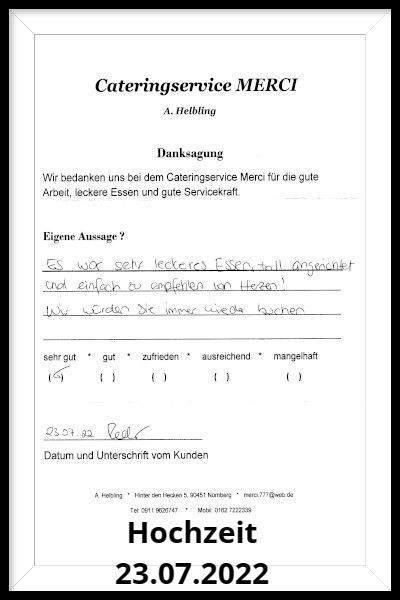 Cateringservice MERCI
A. Helbling
Danksagung
Wir bedanken uns bei dem Cateringservice Merci für die gute
Arbeit, leckere Essen und gute Servicekraft.
Eigene Aussage ?
Es war sehr leckeres Essen, toll angerichtet
und einfach zu empfehlen von Herzen!
Wir würden Sie immer wieder buchen
sehr gut * gut * zufrieden * ausreichend * mangelhaft
(✓) ( ) ( ) ( ) ( )
23.07.22
Datum und Unterschrift vom Kunden
A. Helbling * Hinter den Hecken 5, 90451 Nürnberg * merci.777@web.de
Tel: 0911 9626747 * Mobil: 0162 7222339
Hochzeit
23.07.2022